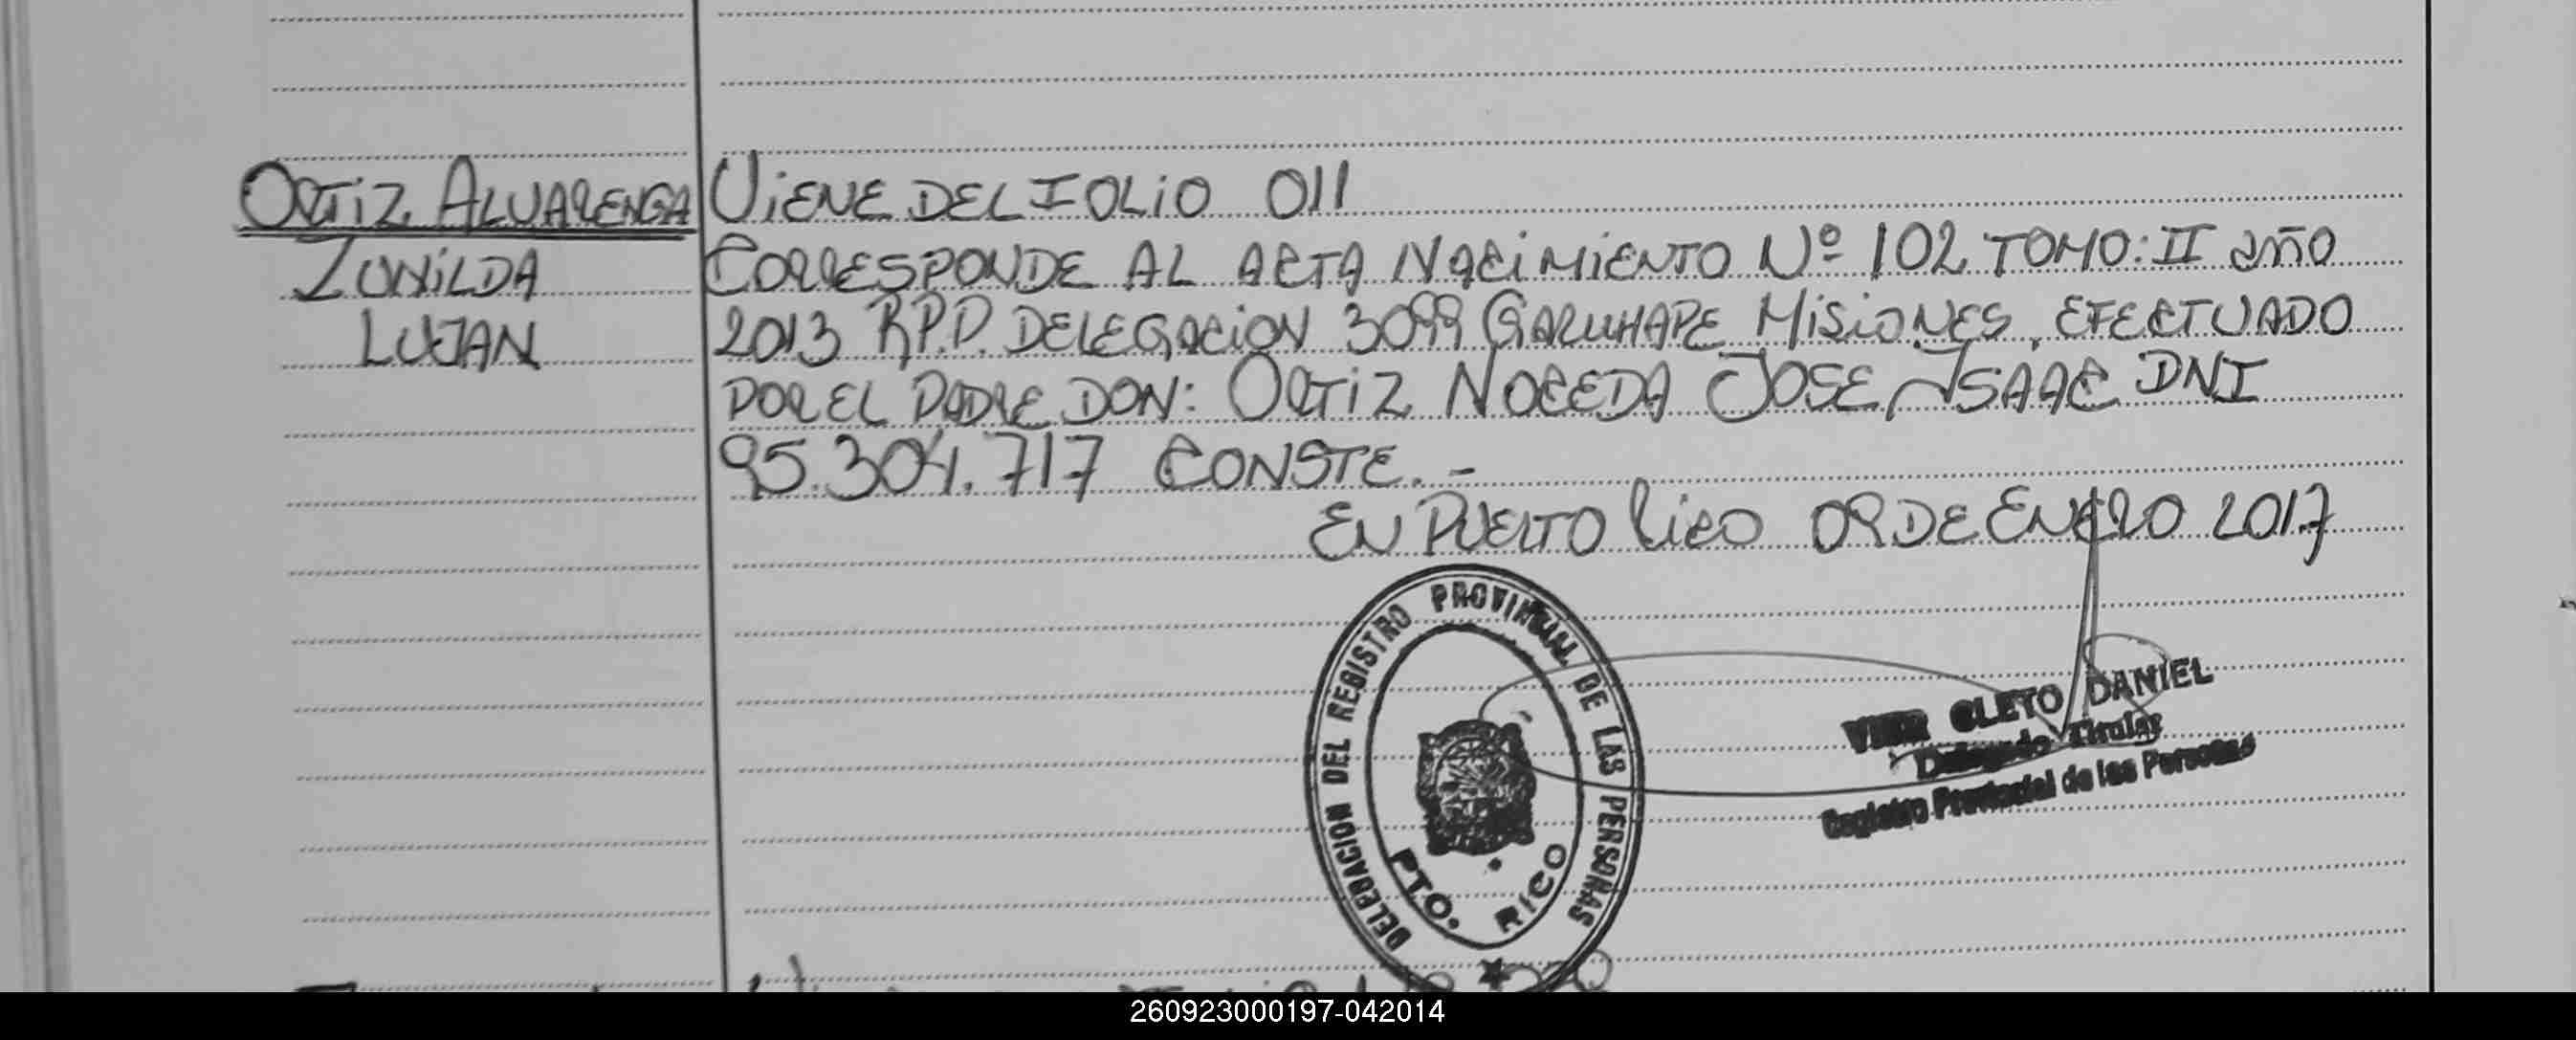 ORTIZ ALVARENGA
ZUNILDA
LUJAN
VIENE DEL FOLIO 011
CORRESPONDE AL ACTA NACIMIENTO Nº 102 TOMO: II año
2013 R.P.P. DELEGACION 3099 GARUHAPE MISIONES, EFECTUADO
POR EL PADRE DON: ORTIZ NOCEDA JOSE ISAAC DNI
95.304.717 CONSTE.-
EN PUERTO RICO 09 DE ENERO 2017
DELEGACION DEL REGISTRO PROVINCIAL DE LAS PERSONAS
PTO. RICO
CLETO DANIEL
Delegado Titular
Registro Provincial de las Personas
260923000197-042014